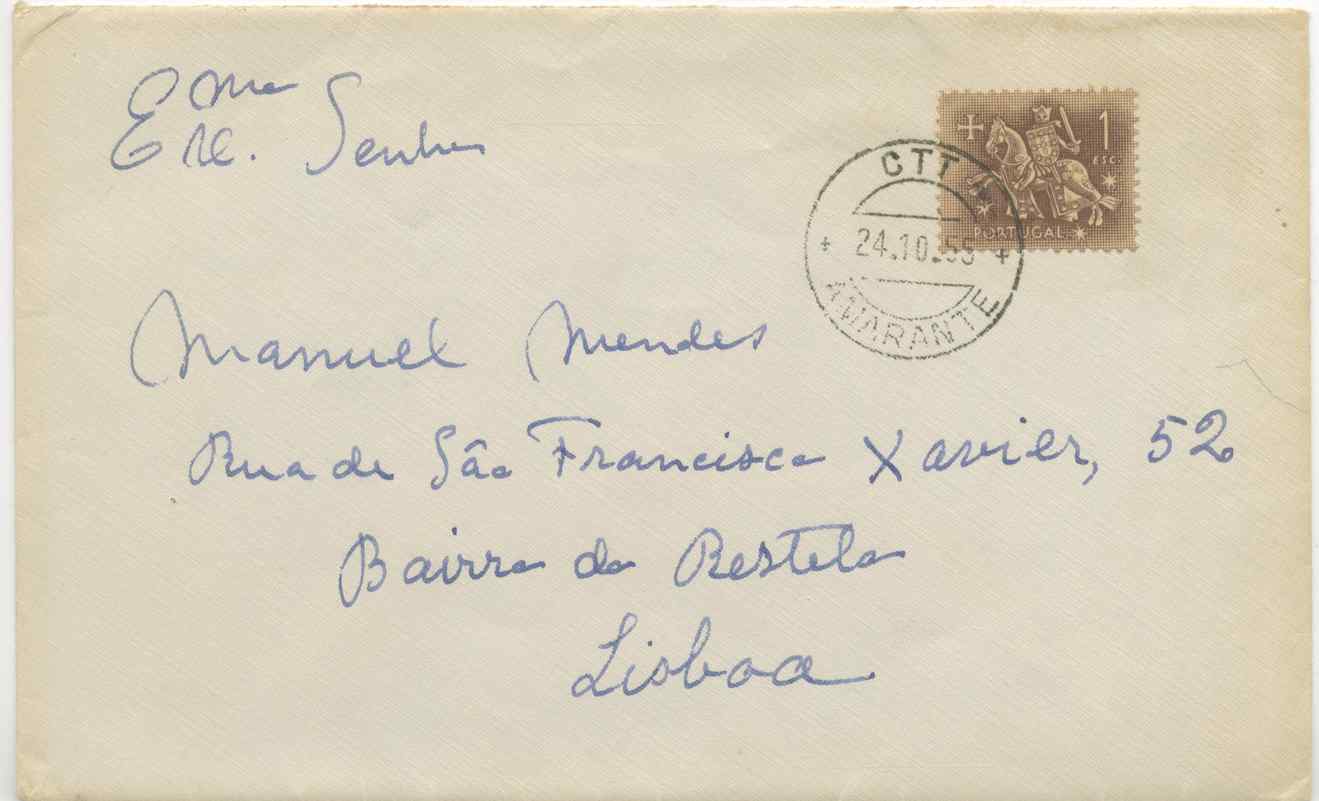 Exmo.
Senhor
Manuel Mendes
Rua de São Francisco Xavier, 52
Bairro do Restelo
Lisboa
1
ESC.
PORTUGAL
CTT
24.10.
AMARANTE